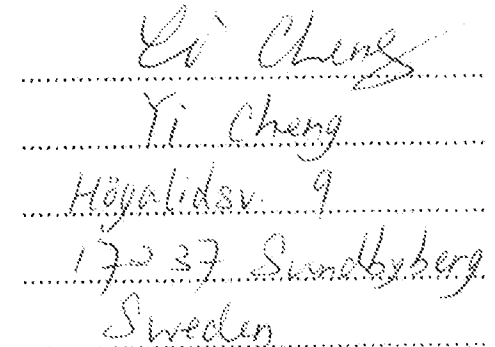 Yi Cheng
Yi Cheng
Högalidsv. 9
172 37 Sundbyberg
Sweden